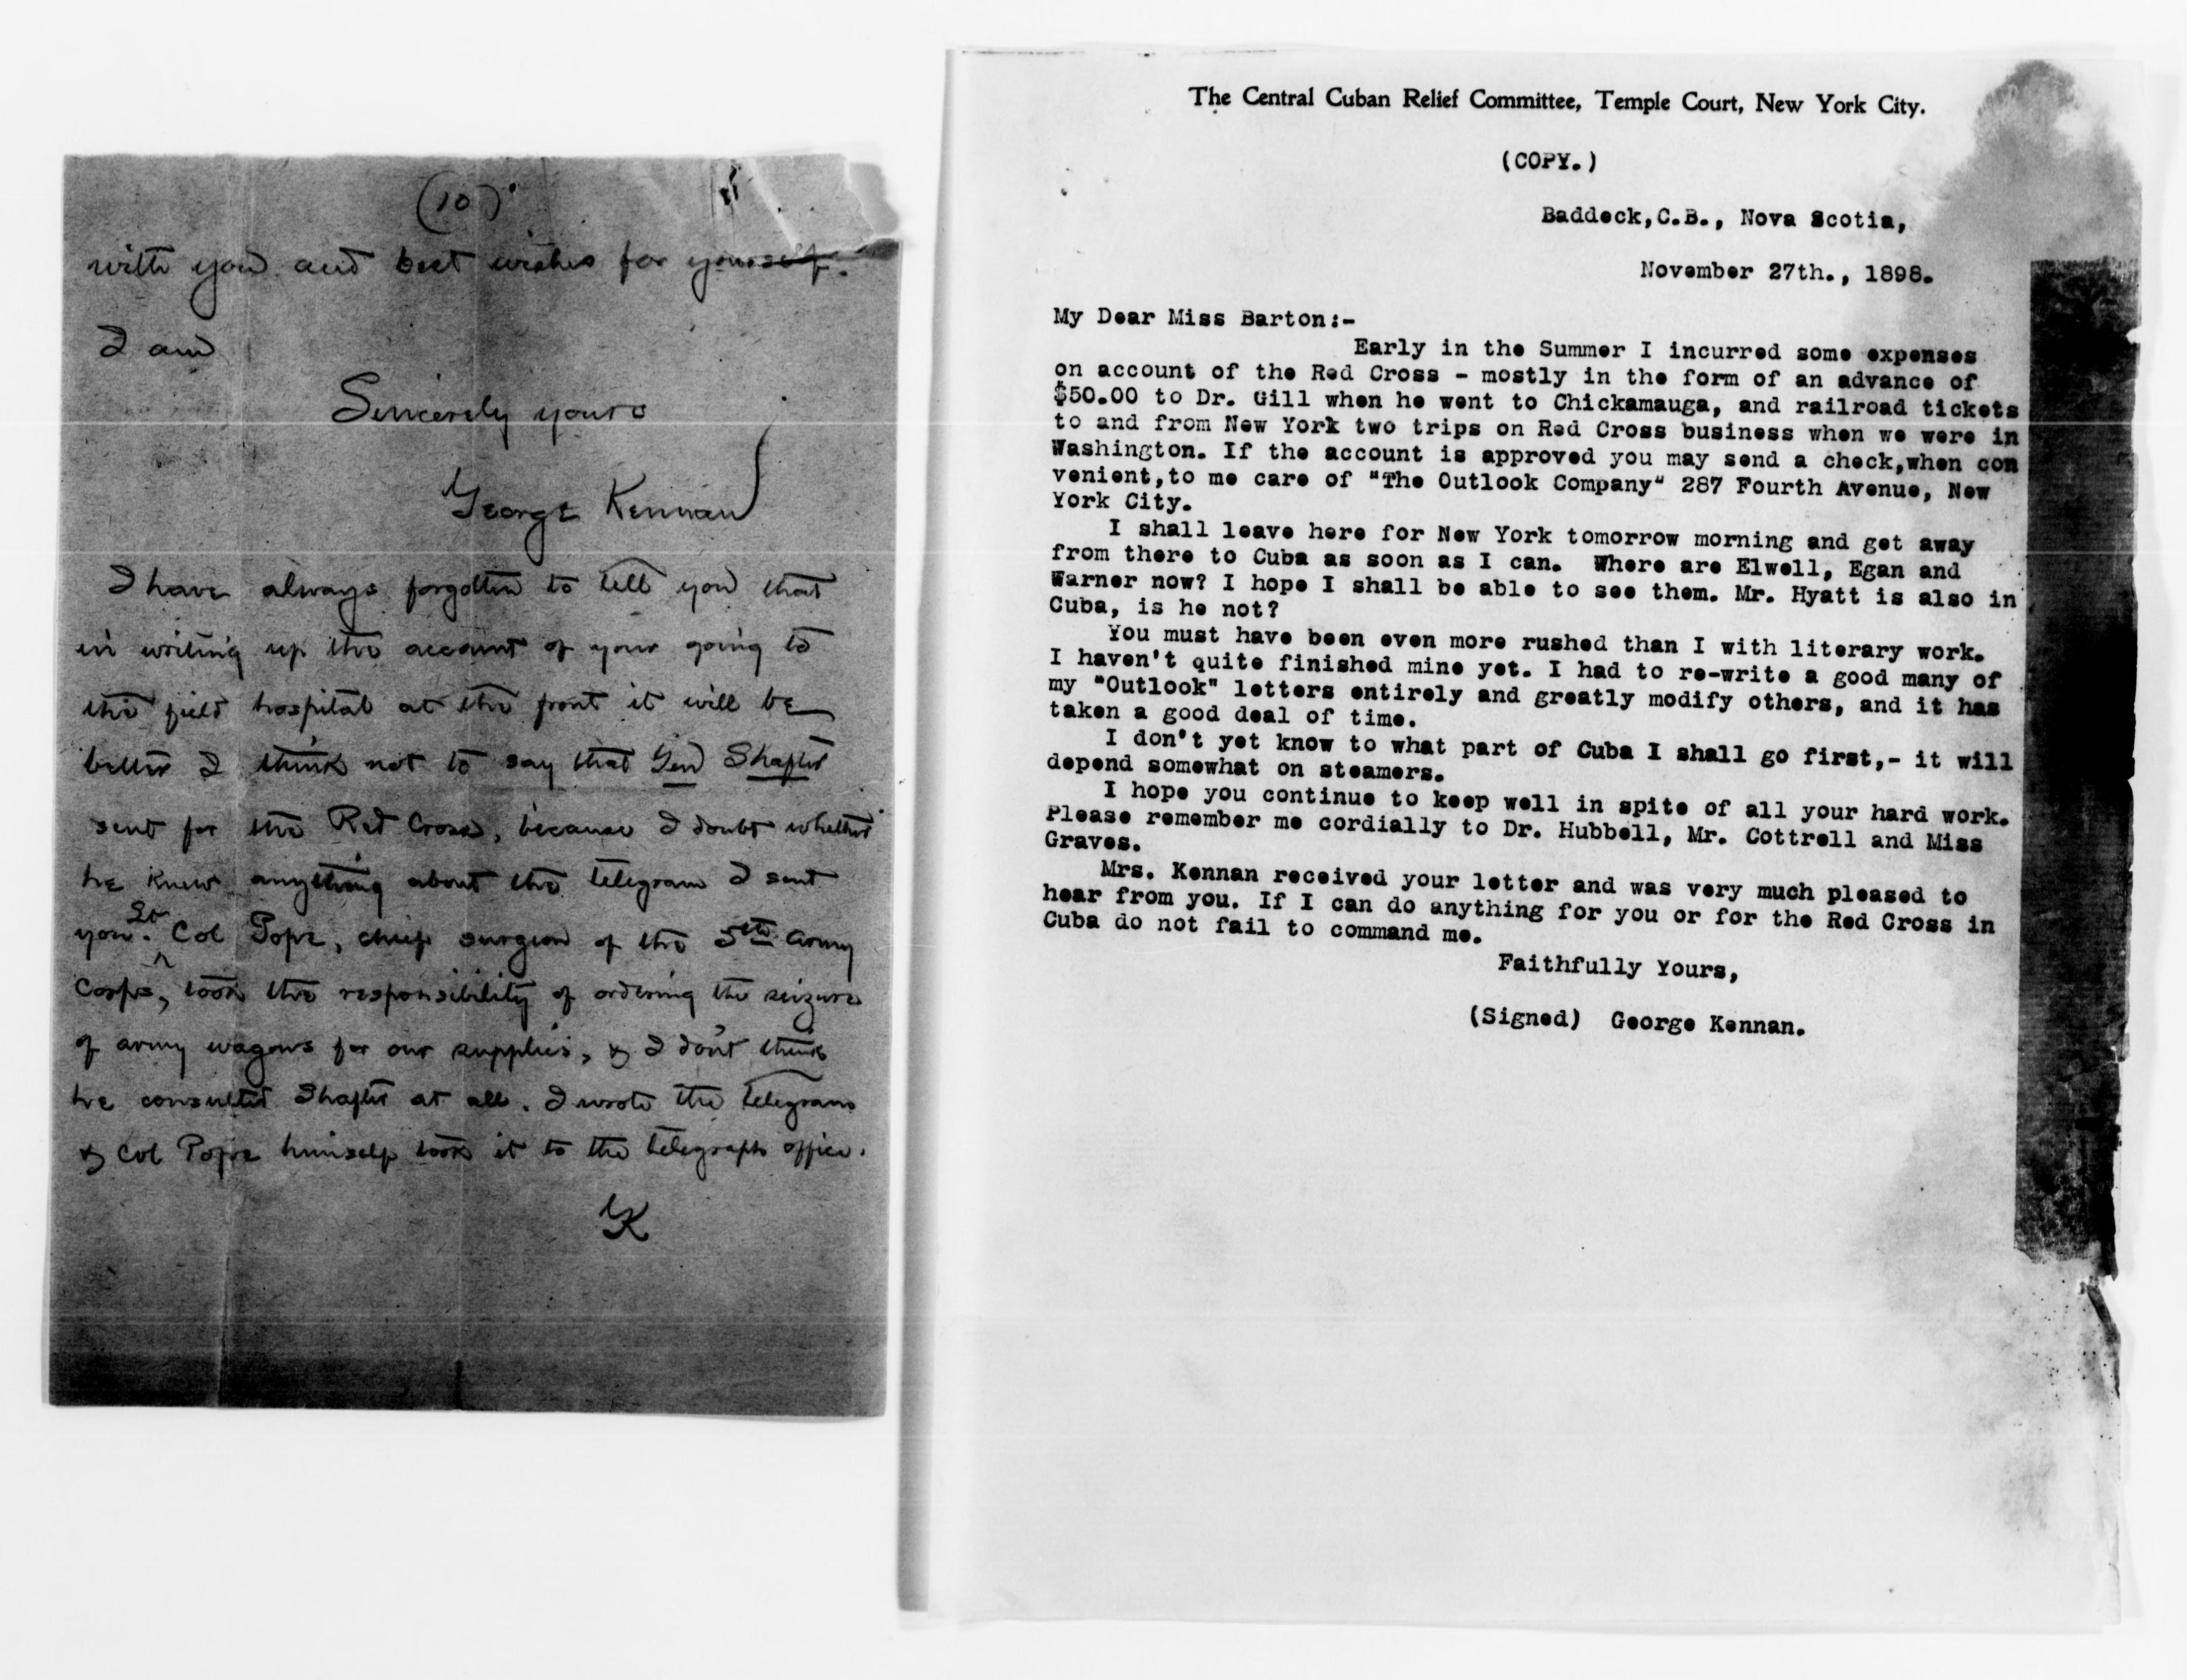 (10)
with you and best wishes for yourself.
I am
Sincerely yours
George Kennan
I have always forgotten to tell you that
in writing up the account of your going to
the field hospital at the front it will be
better I think not to say that Gen Shafter
sent for the Red Cross, because I doubt whether
he knew anything about the telegram I sent
you. Lt Col Pope, chief surgeon of the 5th Army
Corps, took the responsibility of ordering the seizure
of army wagons for our supplies, & I don't think
he consulted Shafter at all. I wrote the telegram
& Col Pope himself took it to the telegraph office.
GK
The Central Cuban Relief Committee, Temple Court, New York City.
(COPY.)
Baddeck,C.B., Nova Scotia,
November 27th., 1898.
My Dear Miss Barton:-
Early in the Summer I incurred some expenses
on account of the Red Cross - mostly in the form of an advance of
$50.00 to Dr. Gill when he went to Chickamauga, and railroad tickets
to and from New York two trips on Red Cross business when we were in
Washington. If the account is approved you may send a check,when con
venient,to me care of "The Outlook Company" 287 Fourth Avenue, New
York City.
I shall leave here for New York tomorrow morning and get away
from there to Cuba as soon as I can. Where are Elwell, Egan and
Warner now? I hope I shall be able to see them. Mr. Hyatt is also in
Cuba, is he not?
You must have been even more rushed than I with literary work.
I haven't quite finished mine yet. I had to re-write a good many of
my "Outlook" letters entirely and greatly modify others, and it has
taken a good deal of time.
I don't yet know to what part of Cuba I shall go first,- it will
depend somewhat on steamers.
I hope you continue to keep well in spite of all your hard work.
Please remember me cordially to Dr. Hubbell, Mr. Cottrell and Miss
Graves.
Mrs. Kennan received your letter and was very much pleased to
hear from you. If I can do anything for you or for the Red Cross in
Cuba do not fail to command me.
Faithfully Yours,
(Signed) George Kennan.